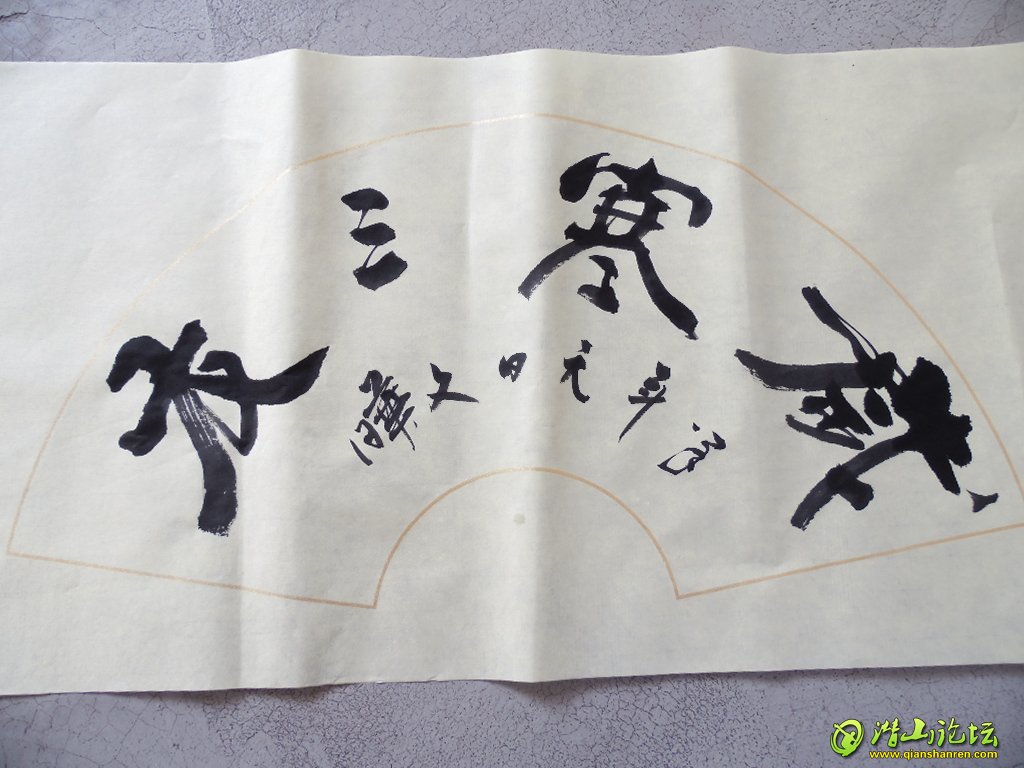 歲寒三友
元日文曄
潜山论坛
www.qianshanren.com